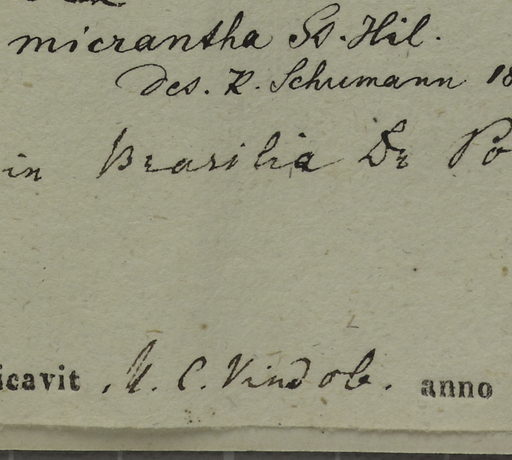 micrantha St. Hil.
Des. K. Schumann 18
in Brasilia Dr Po
icavit M. C. Vindob. anno